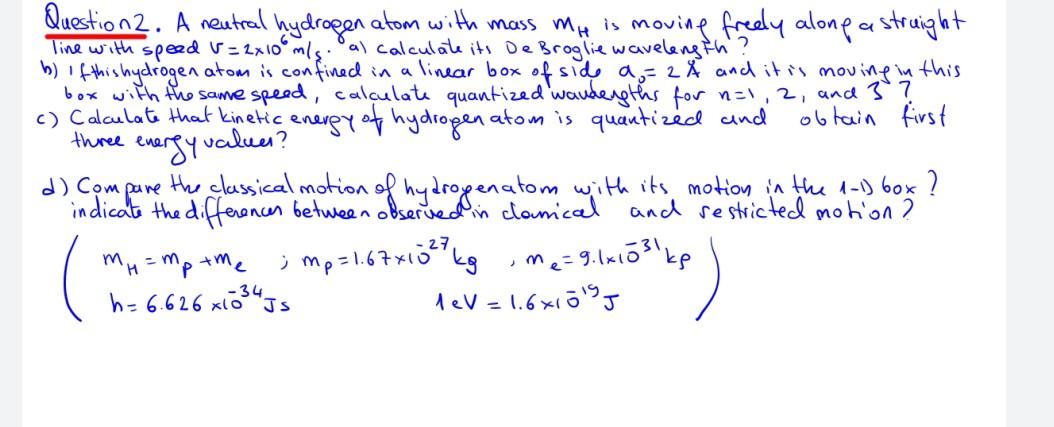 Question2. A neutral hydrogen atom with mass m_H is moving freely along a straight
line with speed v = 2x10⁶ m/s. a) calculate its De Broglie wavelength?
b) If this hydrogen atom is confined in a linear box of side a₀ = 2 Å and it is moving in this
box with the same speed, calculate quantized wavelengths for n=1, 2, and 3?
c) Calculate that kinetic energy of hydrogen atom is quantized and obtain first
three energy values?
d) Compare the classical motion of hydrogen atom with its motion in the 1-D box?
indicate the differences between observed in classical and restricted motion?
m_H = m_p + m_e ; m_p = 1.67x10⁻²⁷ kg , m_e = 9.1x10⁻³¹ kg
h = 6.626 x10⁻³⁴ Js 1 eV = 1.6x10⁻¹⁹ J